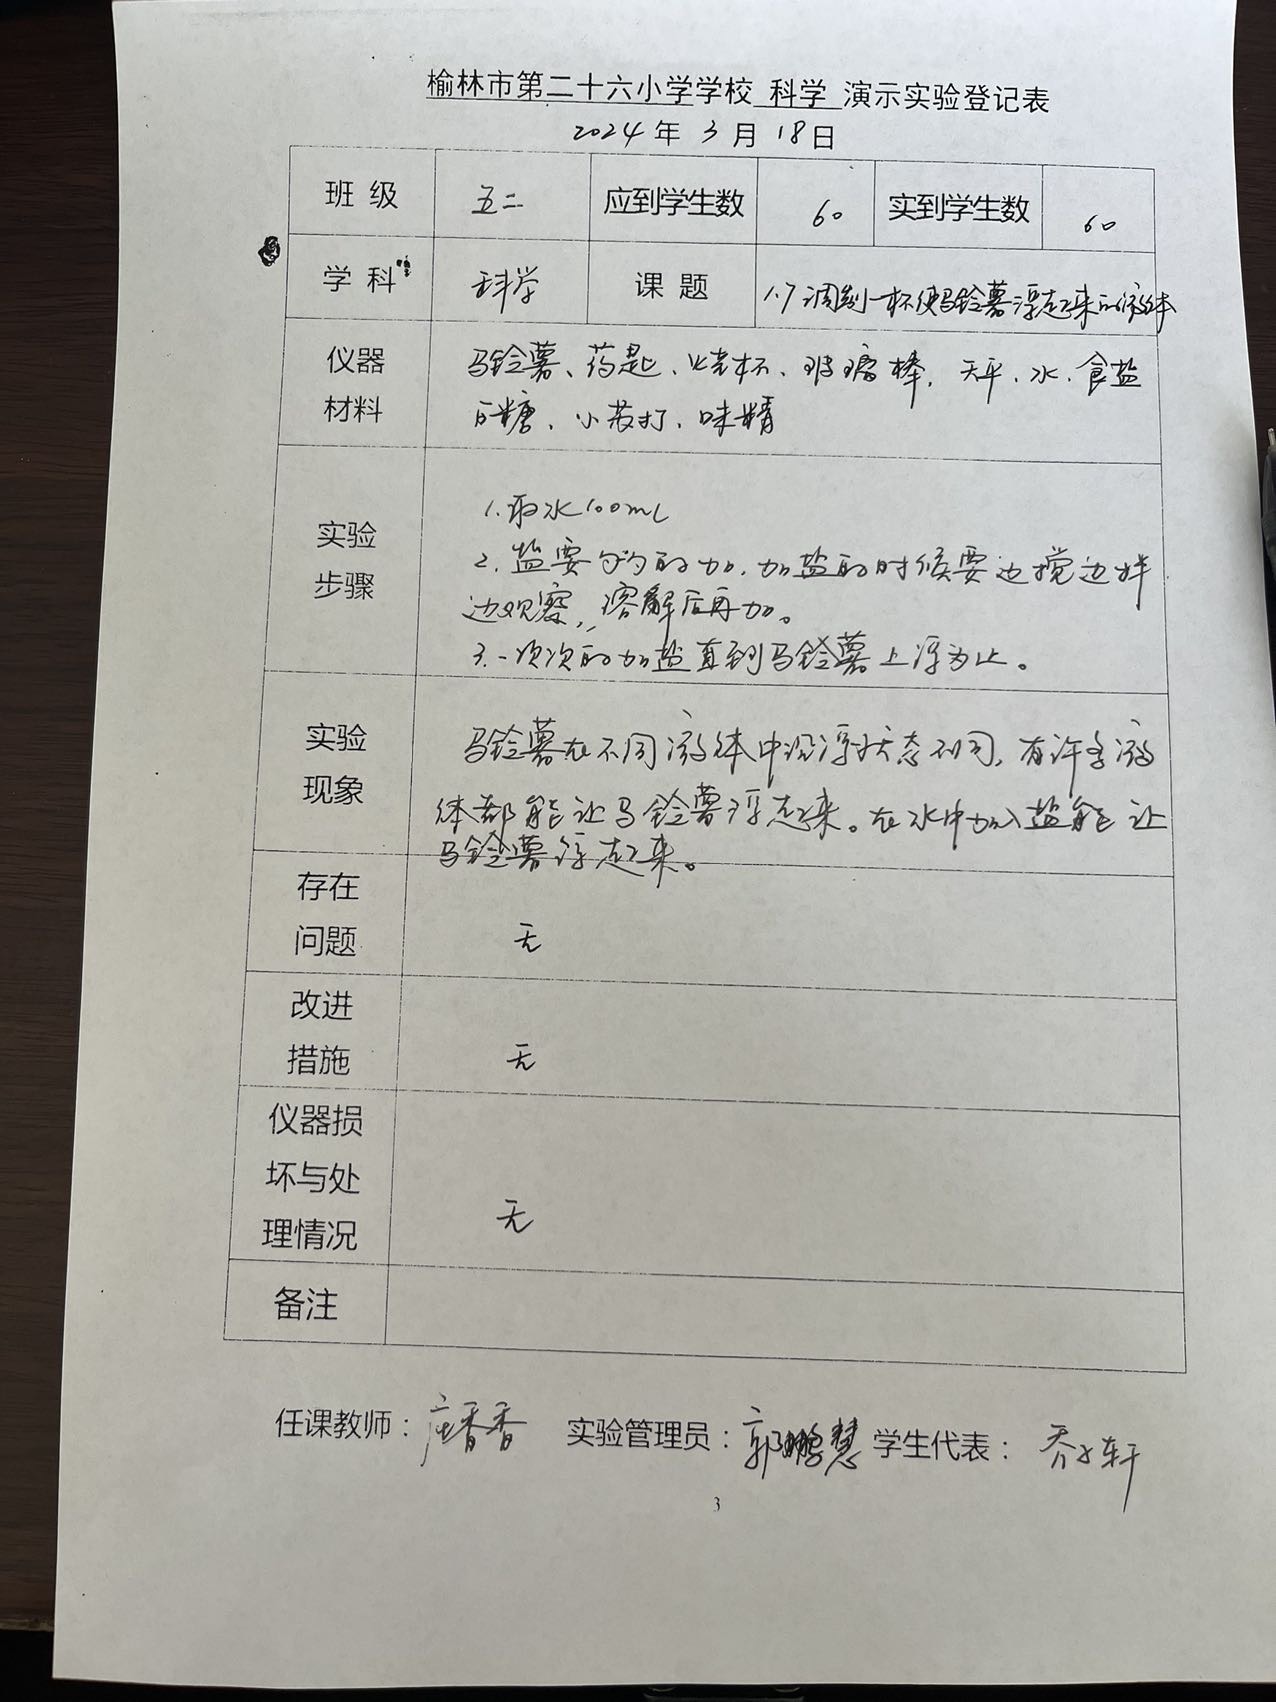 榆林市第二十六小学学校 科学 演示实验登记表
2024 年 3 月 18 日
班 级 五二 应到学生数 60 实到学生数 60
学 科 科学 课 题 1.7调制一杯使马铃薯浮起来的液体
仪器
材料
马铃薯、药匙、烧杯、玻璃棒、天平、水、食盐
白糖、小苏打、味精
实验
步骤
1.取水100mL
2.盐要匀的加,加盐的时候要边搅边拌
边观察,溶解后再加。
3.一次次的加盐直到马铃薯上浮为止。
实验
现象
马铃薯在不同液体中沉浮状态不同,有许多液
体都能让马铃薯浮起来。在水中加入盐能让
马铃薯浮起来。
存在
问题
无
改进
措施
无
仪器损
坏与处
理情况
无
备注
任课教师: 香香 实验管理员: 郭鹏慧 学生代表: 乔子轩
3